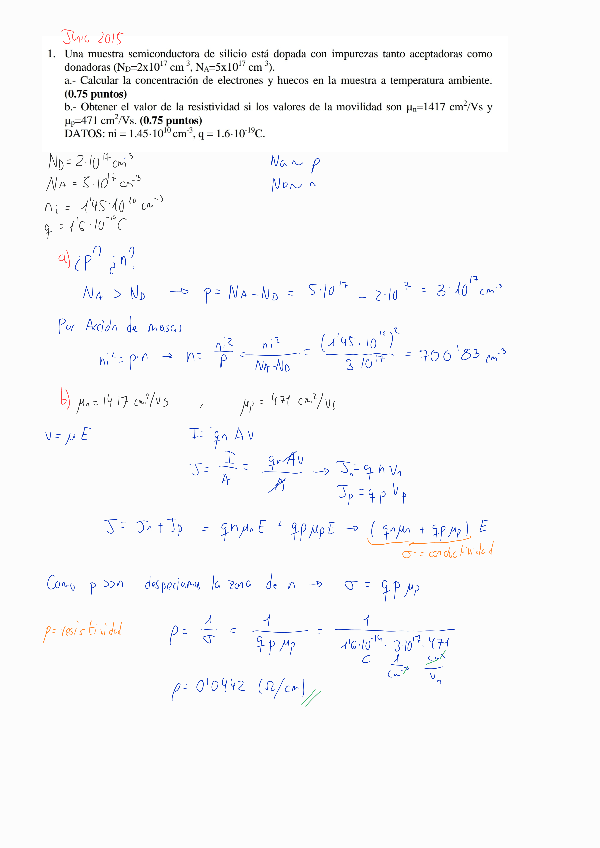 Junio 2015
1. Una muestra semiconductora de silicio está dopada con impurezas tanto aceptadoras como
donadoras (N_D=2x10^17 cm^-3, N_A=5x10^17 cm^-3).
a.- Calcular la concentración de electrones y huecos en la muestra a temperatura ambiente.
(0.75 puntos)
b.- Obtener el valor de la resistividad si los valores de la movilidad son μ_n=1417 cm^2/Vs y
μ_p=471 cm^2/Vs. (0.75 puntos)
DATOS: ni = 1.45·10^10 cm^-3, q = 1.6·10^-19C.
N_D = 2·10^17 cm^-3 Na ~ p
N_A = 5·10^17 cm^-3 Nd ~ n
ni = 1'45·10^10 cm^-3
q = 1'6·10^-19 C
a) ¿p? ¿n?
N_A > N_D → p = N_A - N_D = 5·10^17 - 2·10^17 = 3·10^17 cm^-3
Por Acción de masas
ni^2 = p·n → n = ni^2/p = ni^2/(N_A-N_D) = (1'45·10^10)^2/(3·10^17) = 700'83 cm^-3
b) μ_n = 1417 cm^2/Vs , μ_p = 471 cm^2/Vs
v = μ E I = q n A v
J = I/A = q n A v/A → J_n = q n v_n
J_p = q p v_p
J = J_n + J_p = q n μ_n E + q p μ_p E → (q n μ_n + q p μ_p) E
σ = conductividad
Como p >>> n despreciamos la zona de n → σ = q p μ_p
ρ = resistividad ρ = 1/σ = 1/(q p μ_p) = 1/(1'6·10^-19 · 3·10^17 · 471)
C 1/cm^3 cm^2/Vs
ρ = 0'0442 (Ω/cm)